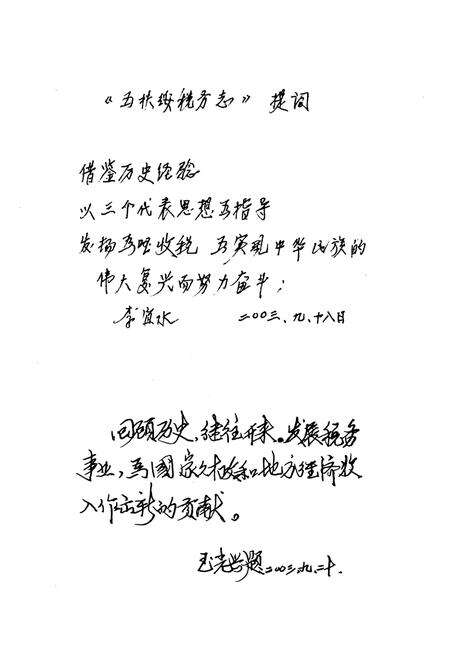 《五扶线税务志》 提词
借鉴历史经验
以三个代表思想为指导
发扬 收税 为实现中华民族的
伟大复兴而努力奋斗;
李宜水 二00三、九、十八日
回顾历史,继往开来。发展税务
事业,为国家财政和地方经济收
入作出新的贡献。
王光兴题 二00三、九、二十.